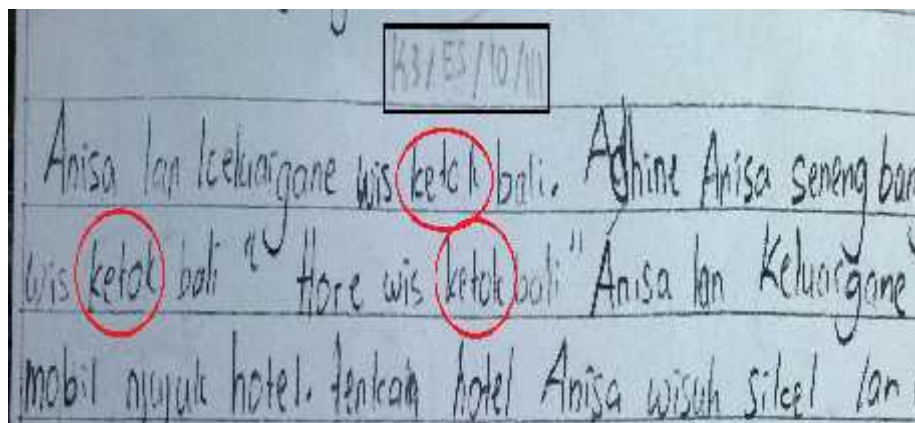 K3/ES/10/III
Anisa lan keluargane wis ketok bali. Adhine Anisa seneng
wis ketok bali " Hore wis ketok bali" Anisa lan Keluargane
mobil njujuk hotel. tenkain hotel Anisa wisuh sikel lan